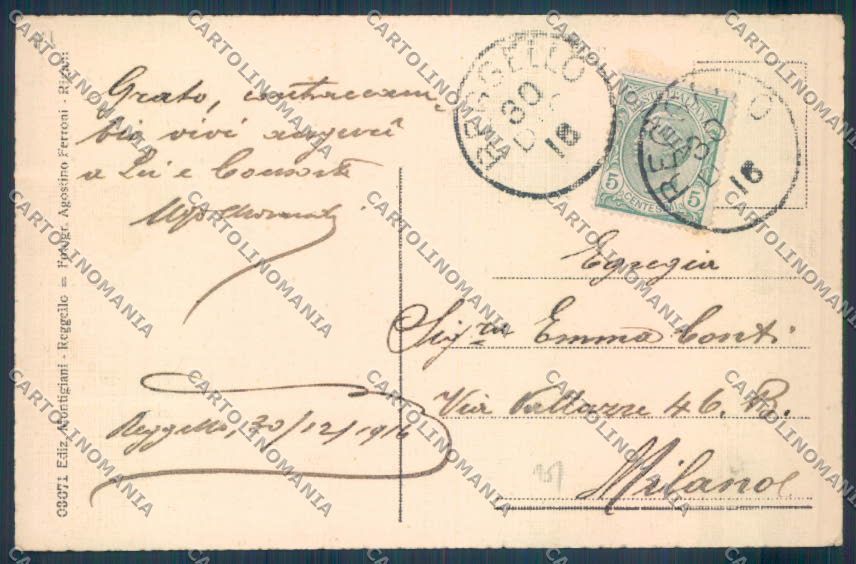 Grato, contraccam
bio vivi auguri
a Lei e Consorte
Reggello, 30/12/1916
Egregia
Sig.ra Emma Conti
Via Vallazze 46. B.
Milano
REGGELLO
30
DIC
16
REGGELLO
30
16
5 5
CENTESIMI
03071 Ediz. Montigiani - Reggello = Fotogr. Agostino Ferroni -
CARTOLINOMANIA